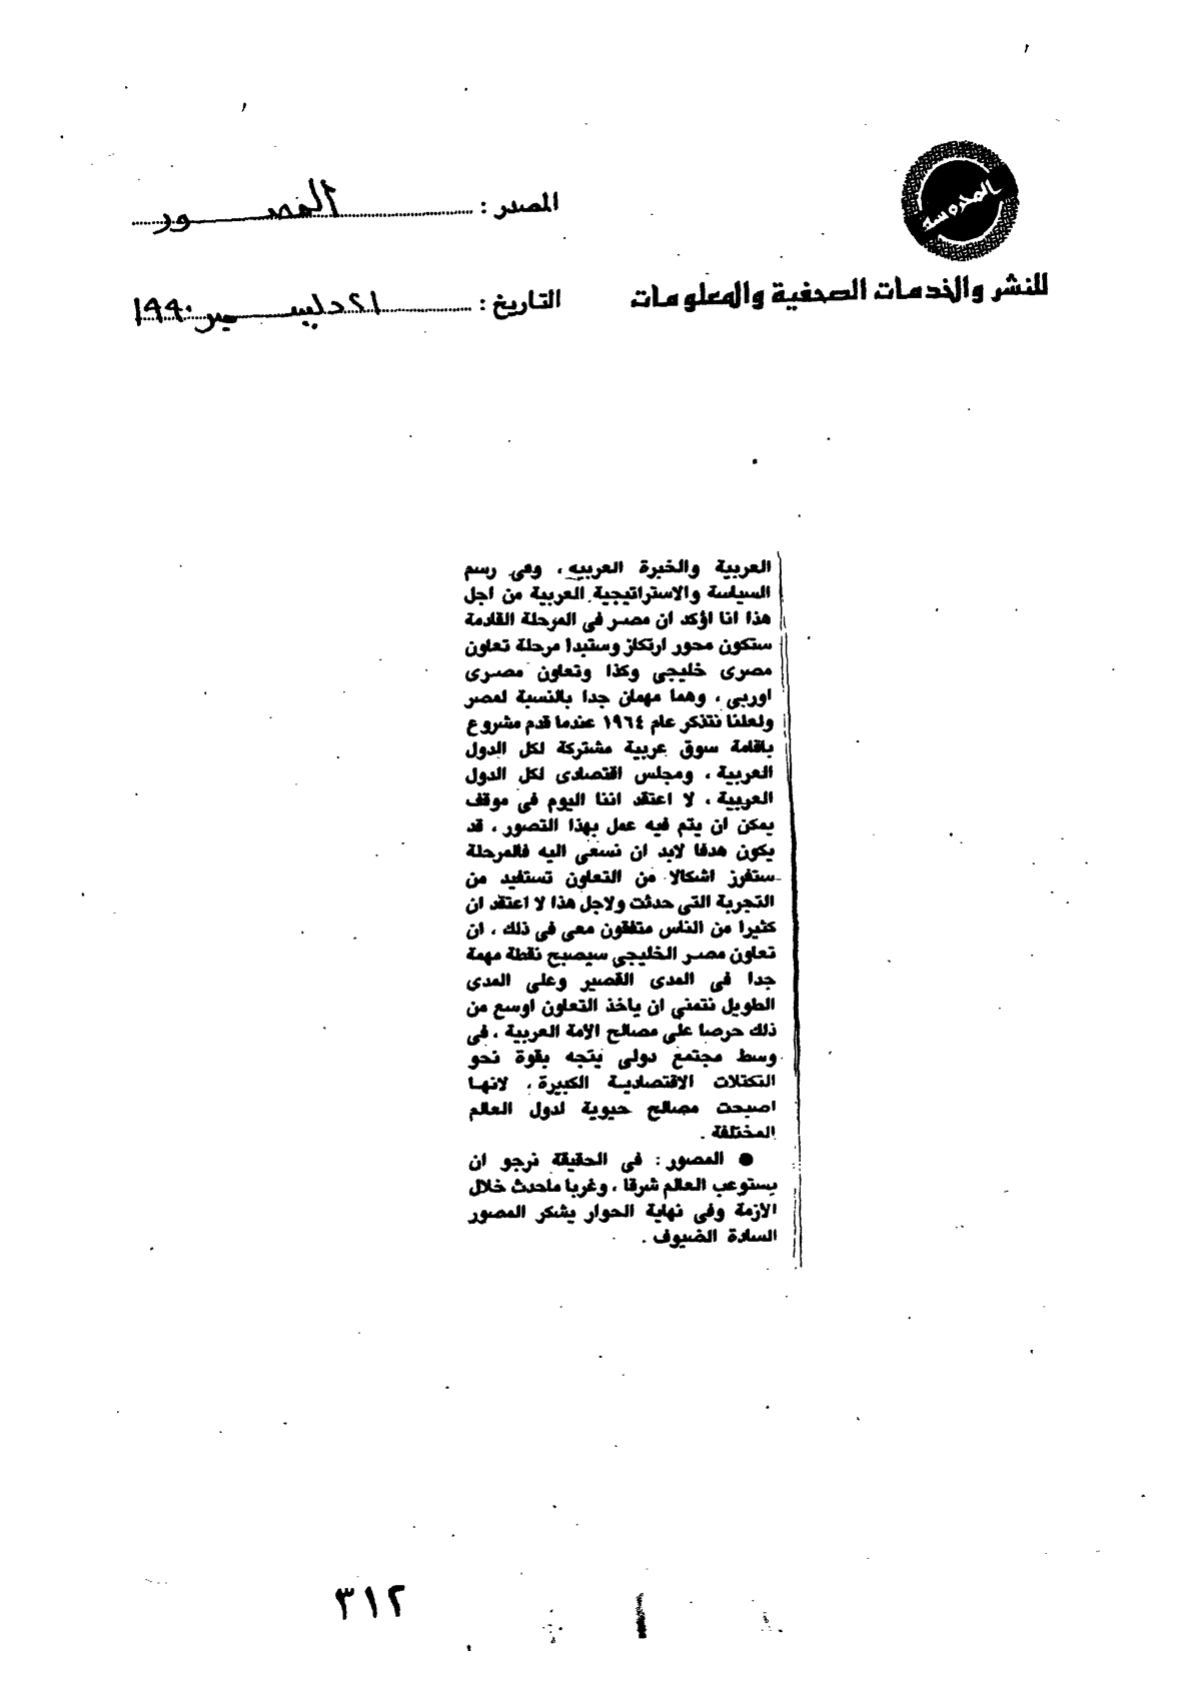 المحروسة
للنشر والخدمات الصحفية والمعلومات
المصدر : المصور
التاريخ : ٢١ ديسمبر ١٩٩٠
العربية والخبرة العربيه ، وفى رسم
السياسة والاستراتيجية العربية من اجل
هذا انا اؤكد ان مصر فى المرحلة القادمة
ستكون محور ارتكاز وستبدا مرحلة تعاون
مصرى خليجى وكذا وتعاون مصرى
اوربى ، وهما مهمان جدا بالنسبة لمصر
ولعلنا نتذكر عام ١٩٦٤ عندما قدم مشروع
باقامة سوق عربية مشتركة لكل الدول
العربية ، ومجلس اقتصادى لكل الدول
العربية ، لا اعتقد اننا اليوم فى موقف
يمكن ان يتم فيه عمل بهذا التصور ، قد
يكون هدفا لابد ان نسعى اليه فالمرحلة
ستفرز اشكالا من التعاون تستفيد من
التجربة التى حدثت ولاجل هذا لا اعتقد ان
كثيرا من الناس متفقون معى فى ذلك ، ان
تعاون مصر الخليجى سيصبح نقطة مهمة
جدا فى المدى القصير وعلى المدى
الطويل نتمنى ان ياخذ التعاون اوسع من
ذلك حرصا على مصالح الامة العربية ، فى
وسط مجتمع دولى يتجه بقوة نحو
التكتلات الاقتصادية الكبيرة ، لانها
اصبحت مصالح حيوية لدول العالم
المختلفة .
● المصور : فى الحقيقة نرجو ان
يستوعب العالم شرقا ، وغربا ماحدث خلال
الازمة وفى نهاية الحوار يشكر المصور
السادة الضيوف .
٣١٢